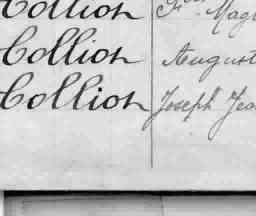 Collion
Collion August
Collion Joseph Jea